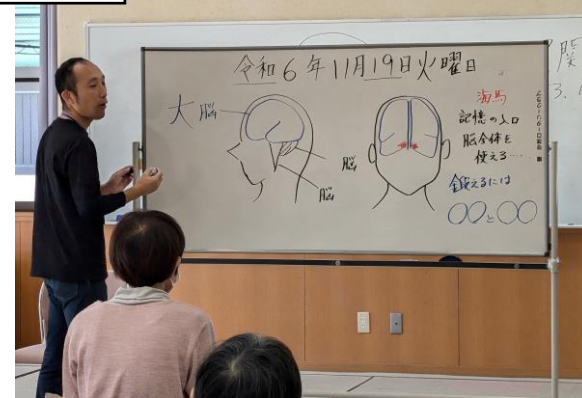 令和6年11月19日火曜日
大脳
脳
脳
海馬
記憶の入口
脳全体を
使える…
鍛えるには
〇〇と〇〇
関
3.1